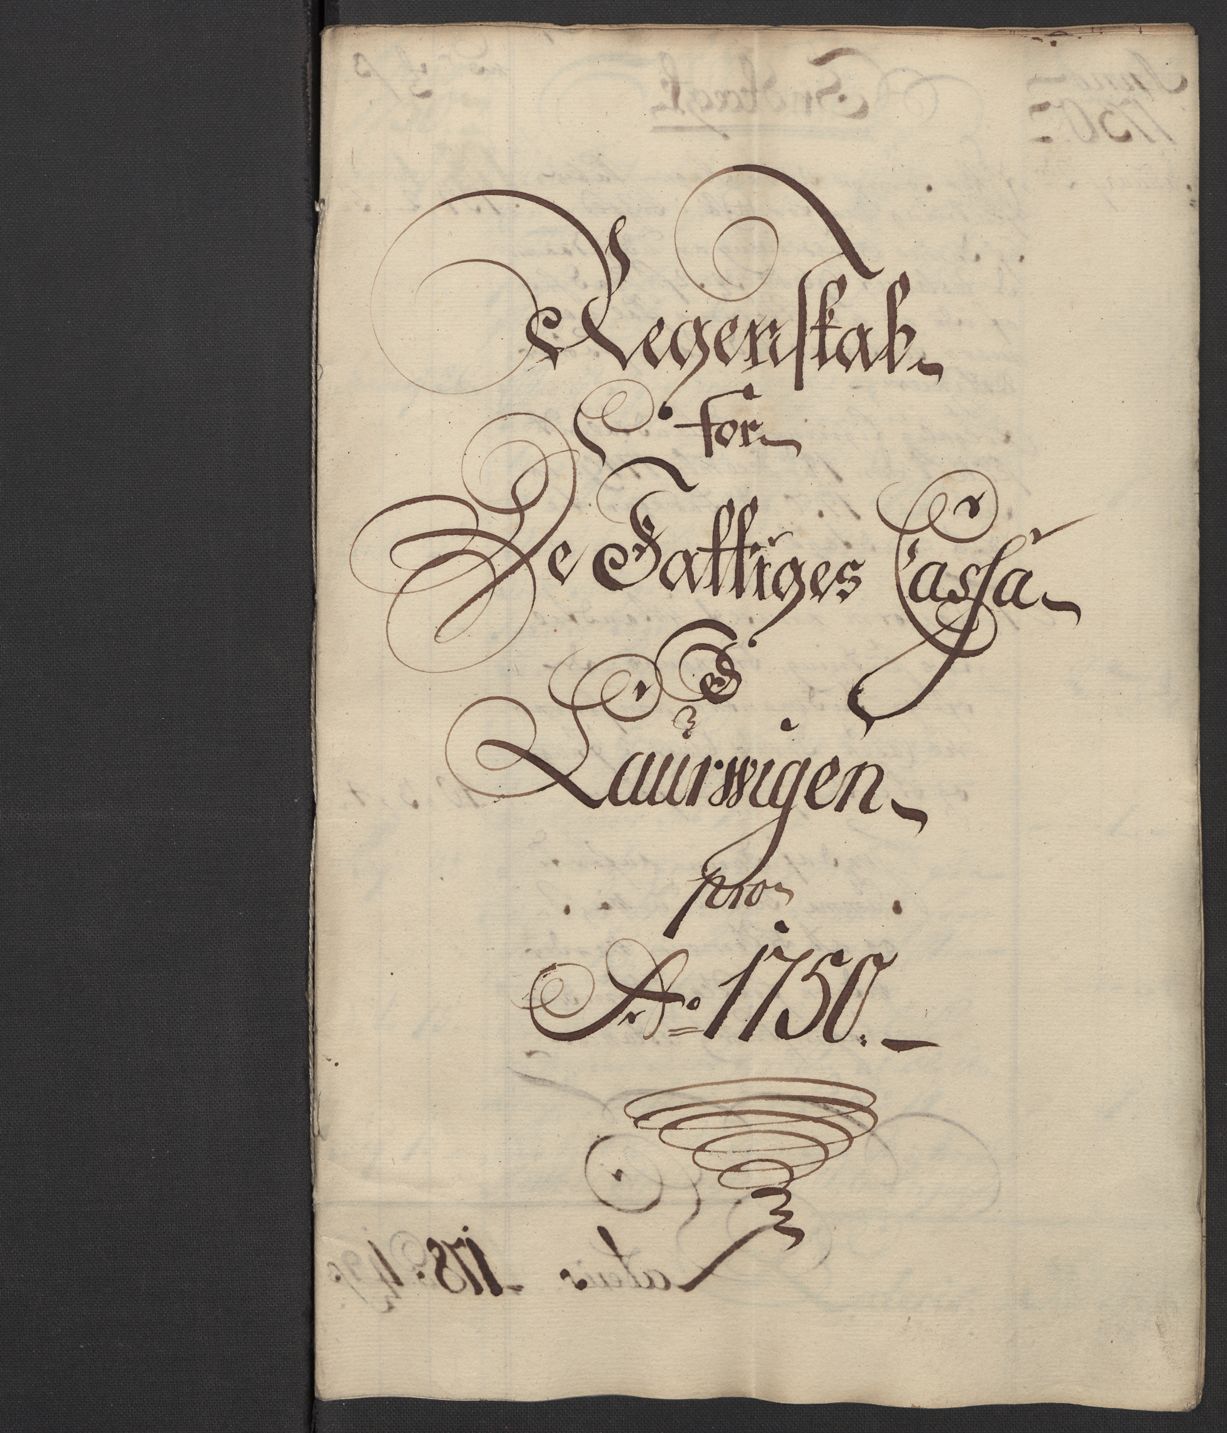 Regenskab
for
De Fattiges Cassa
I
Laurwigen
pro
Ao 1750.